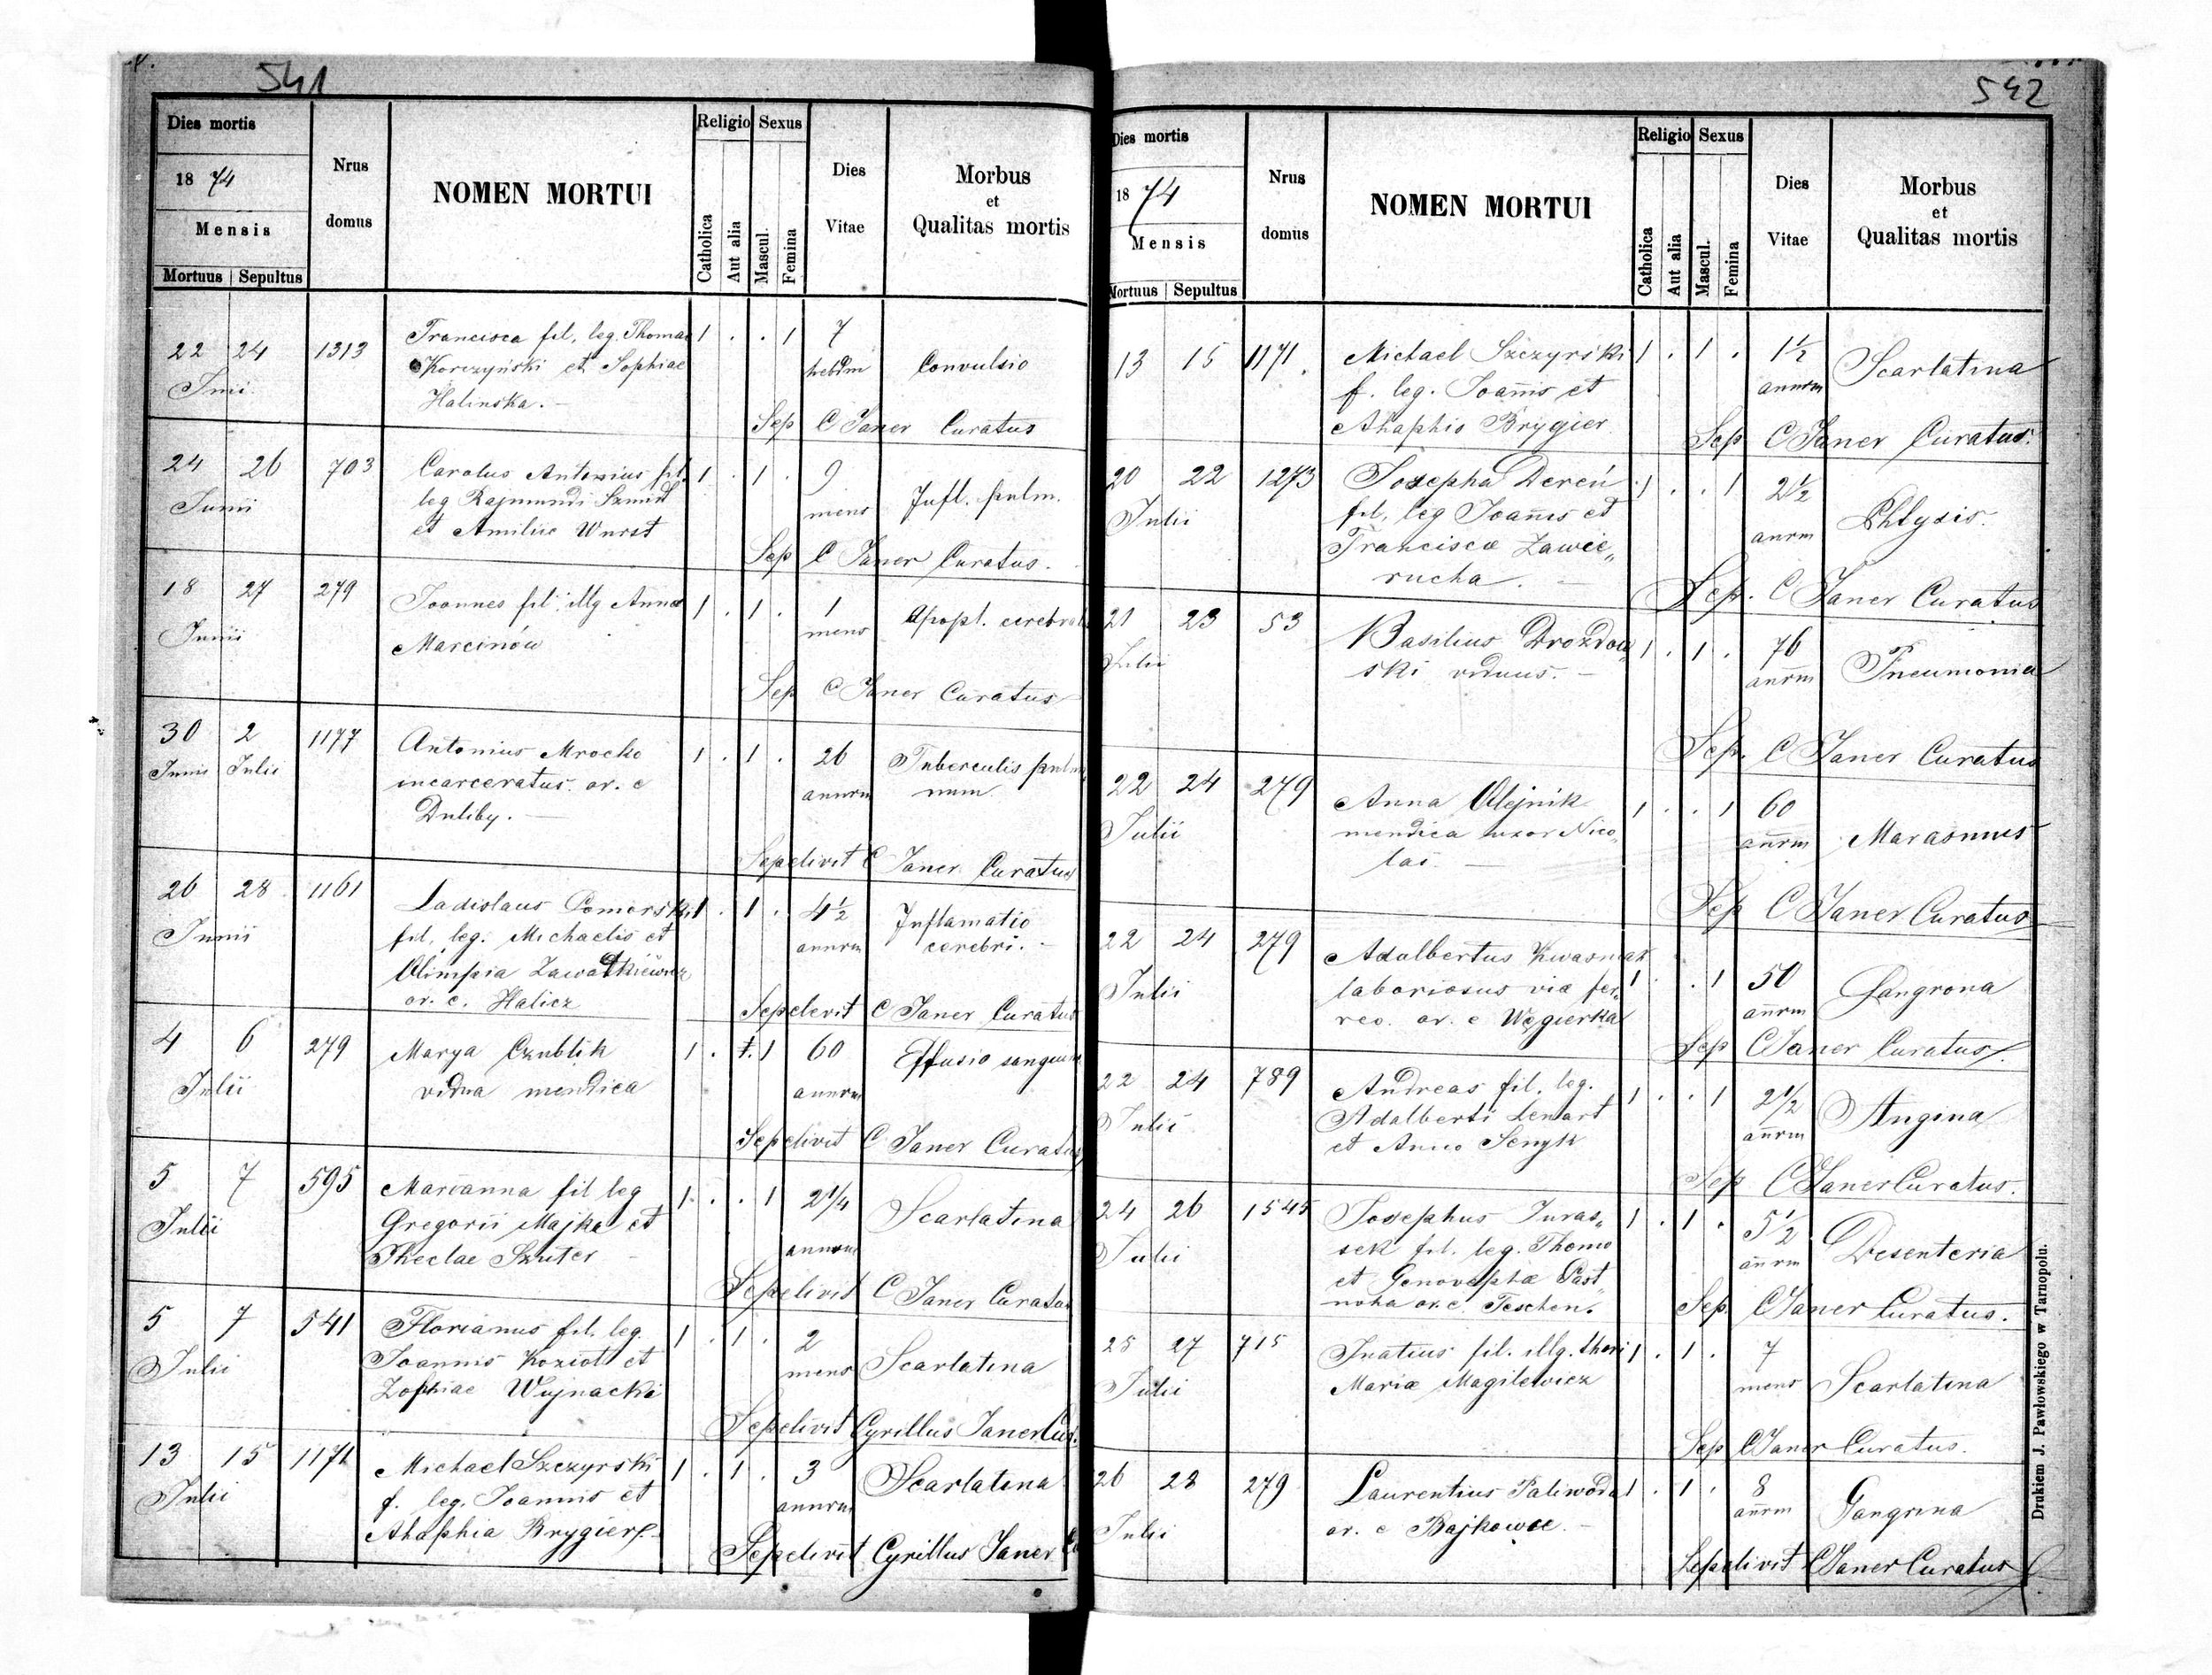 541
Dies mortis
1874
Mensis
Mortuus Sepultus
Nrus domus
NOMEN MORTUI
Religio
Catholica
Aut alia
Sexus
Mascul.
Femina
Dies Vitae
Morbus
et
Qualitas mortis
22 24 1313 Francisca fil. leg. Thomae 1 . . 1 7
Korczyński et Sophiae hebdm Convulsio
Halinska. —
Sep C Janer Curatus
24 26 703 Carolus Antonius fil. 1 . 1 . 9
Junii leg Rajmundi Szmidt mens Infl. pulm.
et Amiliae Wurst
Sep C Janer Curatus.
18 27 279 Joannes fil. illg Annae 1 . 1 . 1 Apopl.
Junii Marcinów mens
Sep C Janer Curatus
30 2 1177 Antonius Mrocko 1 . 1 . 26 Tuberculis
Junii Julii incarceratus. or. e annrm num
Duliby. —
Sepelivit C Janer Curatus
26 28 1161 Ladislaus Pomerski 1 . 1 . 4 1/2 Inflamatio
Junii fil. leg. Michaelis et annrm cerebri. -
Olimpia
or. e. Halicz
Sepelevit C Janer Curatus
4 6 279 Marya Czublik 1 . . 1 60 Effusio
Julii vidua mendica annrm
Sepelivit C Janer Curatus
5 7 595 Marianna fil leg 1 . . 1 2 1/4 Scarlatina
Julii Gregorii Majka et annrm
Theclae Szuter -
Sepelivit C Janer Curatus
5 7 541 Florianus fil. leg. 1 . 1 . 2
Julii Joannis Kozioł et mens Scarlatina
Zophiae Wujnacki
Sepelivit Cyrillus Janer Cur.
13 15 1171 Michael Szczyrski 1 . 1 . 3 Scarlatina
Julii f. leg. Joannis et annrm
Ahaphia Brygier
Sepelivit Cyrillus Janer
542
Dies mortis
1874
Mensis
Mortuus Sepultus
Nrus domus
NOMEN MORTUI
Religio
Catholica
Aut alia
Sexus
Mascul.
Femina
Dies Vitae
Morbus
et
Qualitas mortis
13 15 1171. Michael Szczyrski 1 . 1 . 1 1/2 Scarlatina
f. leg. Joanis et annrm
Ahaphio Brygier
Sep C Janer Curatus.
20 22 1273 Josepha Dereń 1 . . 1 2 1/2
Julii fil. leg Joanis et anrm Phtysis.
Francisca Zawie„
rucha. —
Sep. C Janer Curatus
21 23 53 Basilius Drozdow„ 1 . 1 . 76
Julii ski viduus. — anrm Pneumonia
Sep. C Janer Curatus
22 24 279 Anna Olejnik 1 . . 1 60
Julii mendica uxor Nico„ anrm Marasmus
lai. —
Sep C Janer Curatus
22 24 279 Adalbertus Kwasniak 1 . . 1 50
Julii laboriosus via fer„ anrm Gangrona
reo. or. e Węgierka
Sep C Janer Curatus
22 24 789 Andreas fil. leg. 1 . . 1 2 1/2
Julii Adalberti Lenart anrm Angina
et Anna Senyk
Sep C Janer Curatus.
24 26 1545 Josephus Juras„ 1 . 1 . 5 1/2
Julii sek fil. leg. Thoma anrm Desenteria
et Genovephae Past
noha or. e. Teschen.
Sep. C Janer Curatus.
25 27 715 Inatius fil. illg. thori 1 . 1 . 7
Julii Maria Magilewicz mens Scarlatina
Sep C Janer Curatus.
26 28 279 Laurentius Paliwoda 1 . 1 . 8
Julii or. e Bajkowce. — anrm Gangrina
Sepelivit C Janer Curatus
Drukiem J. Pawłowskiego w Tarnopolu.